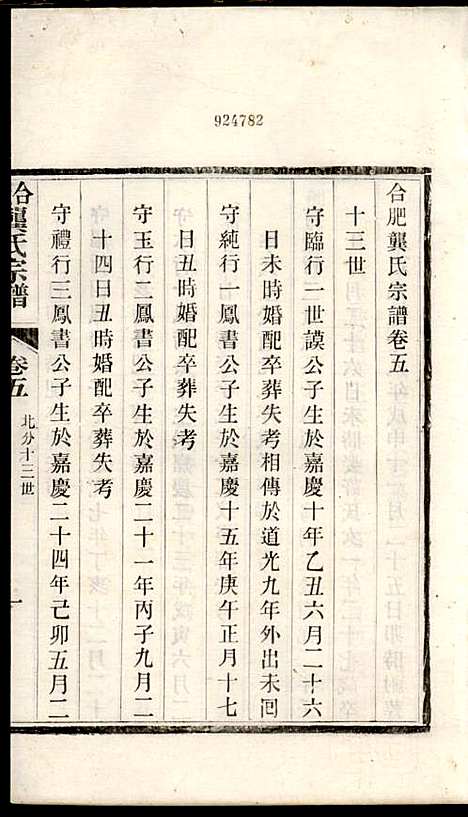 924782
合肥龔氏宗譜卷五
十三世
守臨行一世謨公子生於嘉慶十年乙丑六月二十六
日未時婚配卒葬失考相傳於道光九年外出未囘
守純行一鳳書公子生於嘉慶十五年庚午正月十七
日丑時婚配卒葬失考
守玉行二鳳書公子生於嘉慶二十一年丙子九月二
十四日丑時婚配卒葬失考
守禮行三鳳書公子生於嘉慶二十四年己卯五月二
龔氏宗譜
卷五
北分十三世
一